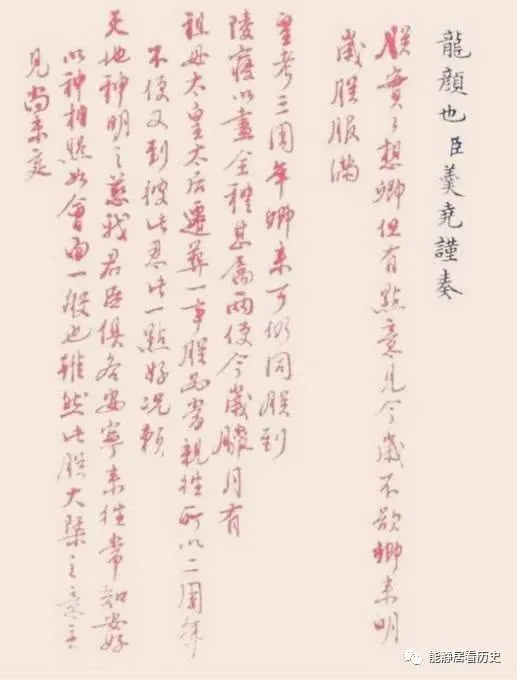 龍顏也臣羹堯謹奏
朕實實想卿但有點意見今歲不欲卿來明
歲朕服滿
皇考三周年卿來可仍同朕到
陵寢以盡全禮甚屬兩便今歲臘月有
祖母太皇太后遷葬一事朕必當親往所以二周年
不便又到彼此忍此一點好況賴
天地神明之慈我君臣俱各安寧來往常知安好
以神相照如會面一般也雖然此朕大槩之意
見尚未定
能静居看历史